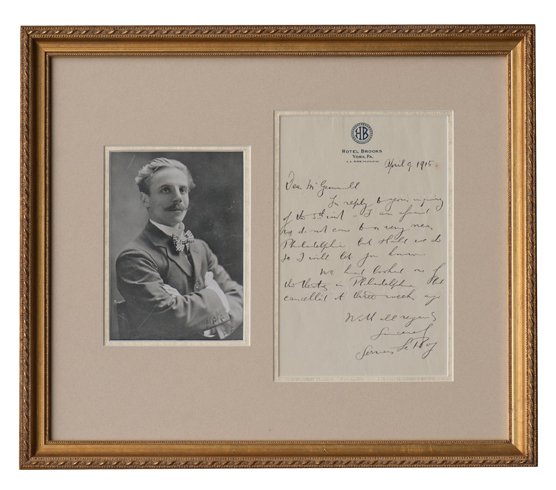 HB
HOTEL BROOKS
YORK, PA.
April 9 1915
Dear Mr
In reply to your inquiry
of the 5th inst - I am afraid
my do not come to a very near
Philadelphia but shall we do
so I will let you know.
We had booked one of
the theatres in Philadelphia but
cancelled it three weeks ago
With all regards
Sincerely
Servais Le Roy